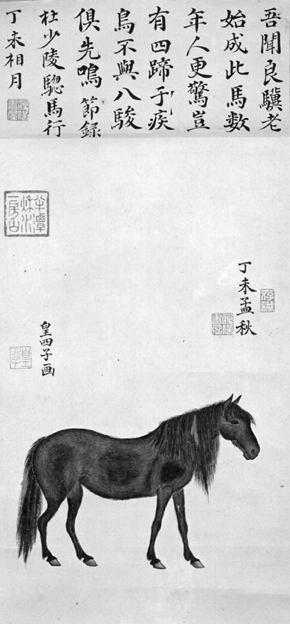 吾聞良驥老
始成此馬數
年人更驚豈
有四蹄于疾
鳥不與八駿
俱先鳴 節録
杜少陵驄馬行
丁未相月
丁未孟秋
皇四子画
半潭
秌水
一房山